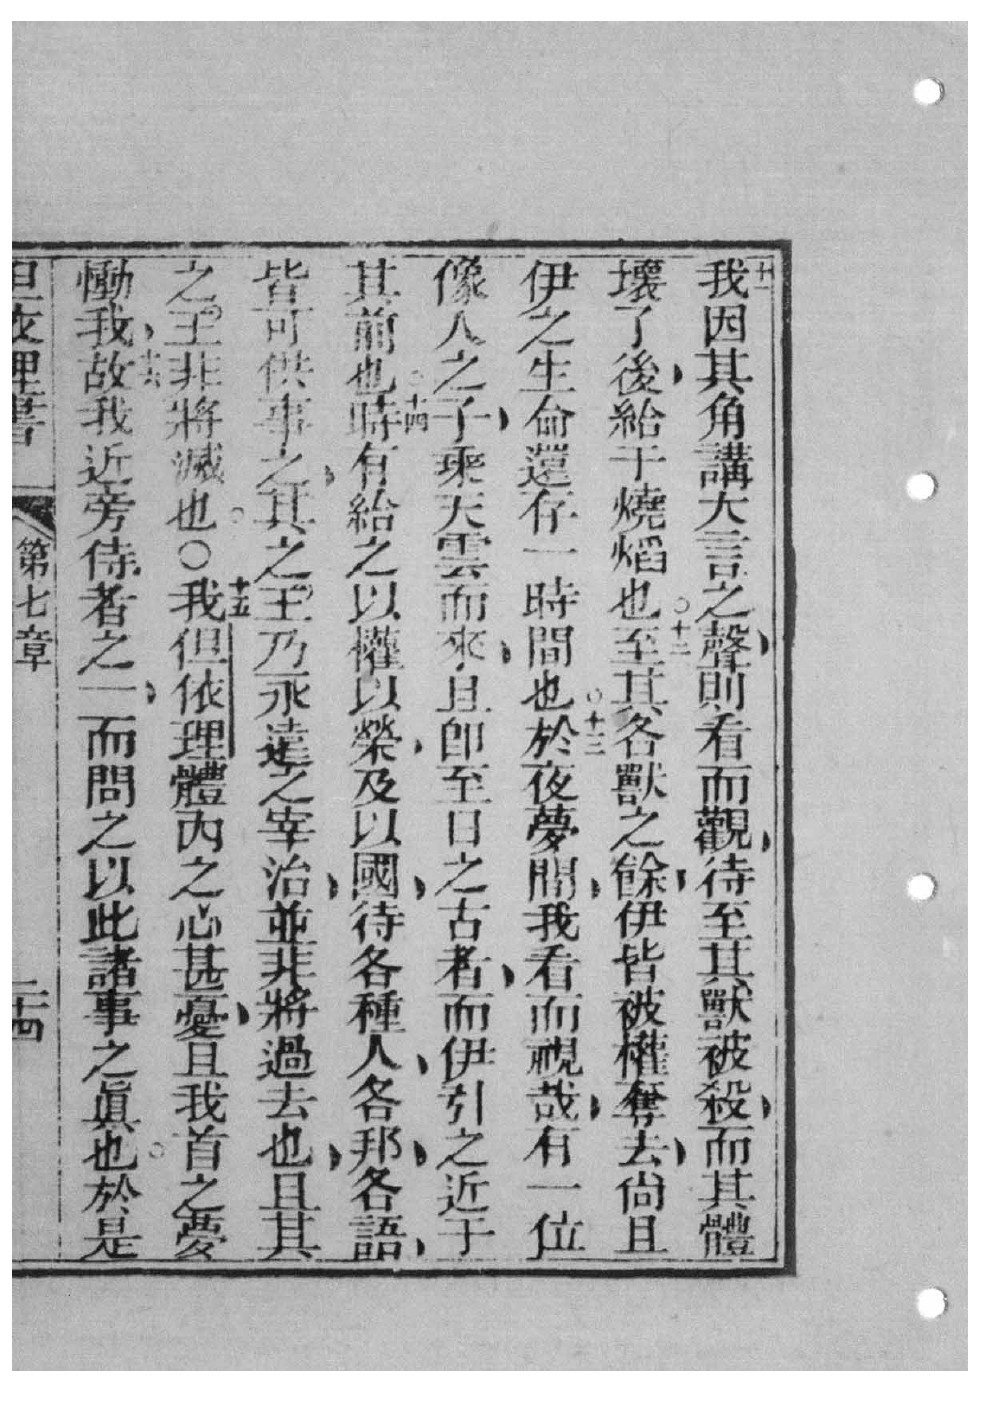 十一我因其角講大言之聲則看而觀待至其獸被殺而其體
壞了後給于燒熖也○十二至其各獸之餘伊皆被權奪去尙且
伊之生命還存一時間也○十三於夜夢間我看而視哉有一位
像人之子乘天雲而來且卽至日之古者而伊引之近于
其前也○十四時有給之以權以榮及以國待各種人各邦各語
皆可供事之其之王乃永遠之宰治並非將過去也且其
之王非將滅也○○十五我但依理體內之心甚憂且我首之夢
慟我十六故我近旁侍者之一而問之以此諸事之眞也○於是
但依理書 第七章 二十四